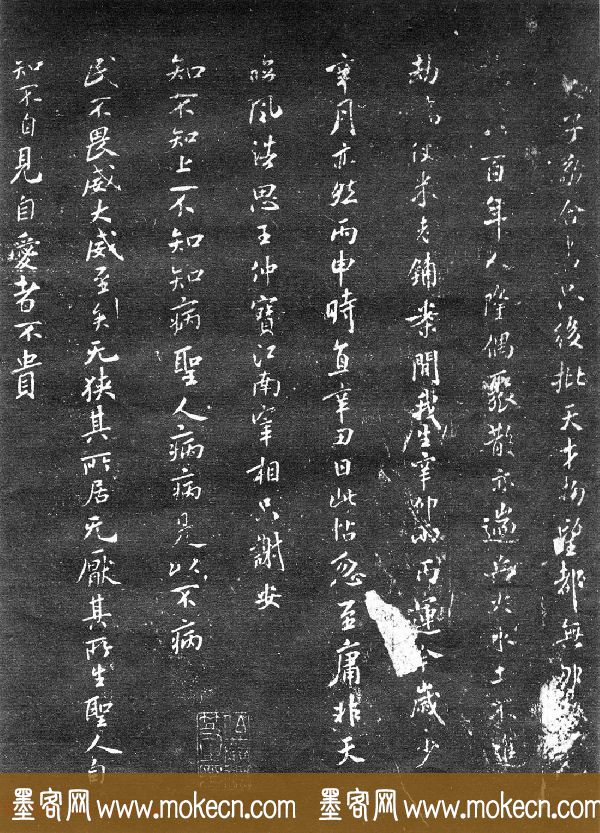 子敬合書只後批天才物望都無
百年人隆偶聚散亦無火水土不
劫役米老鋪案間我生辛卯丙運歲少
辛月亦然丙申時直辛丑日此帖忽至庸非天
臨風浩思王仲寶江南宰相只謝安
知不知上不知知病聖人病病是以不病
民不畏威大威至矣无狹其所居无厭其所生聖人自
知不自見自愛者不貴
墨客网 www.mokecn.com 墨客网 www.mokecn.com